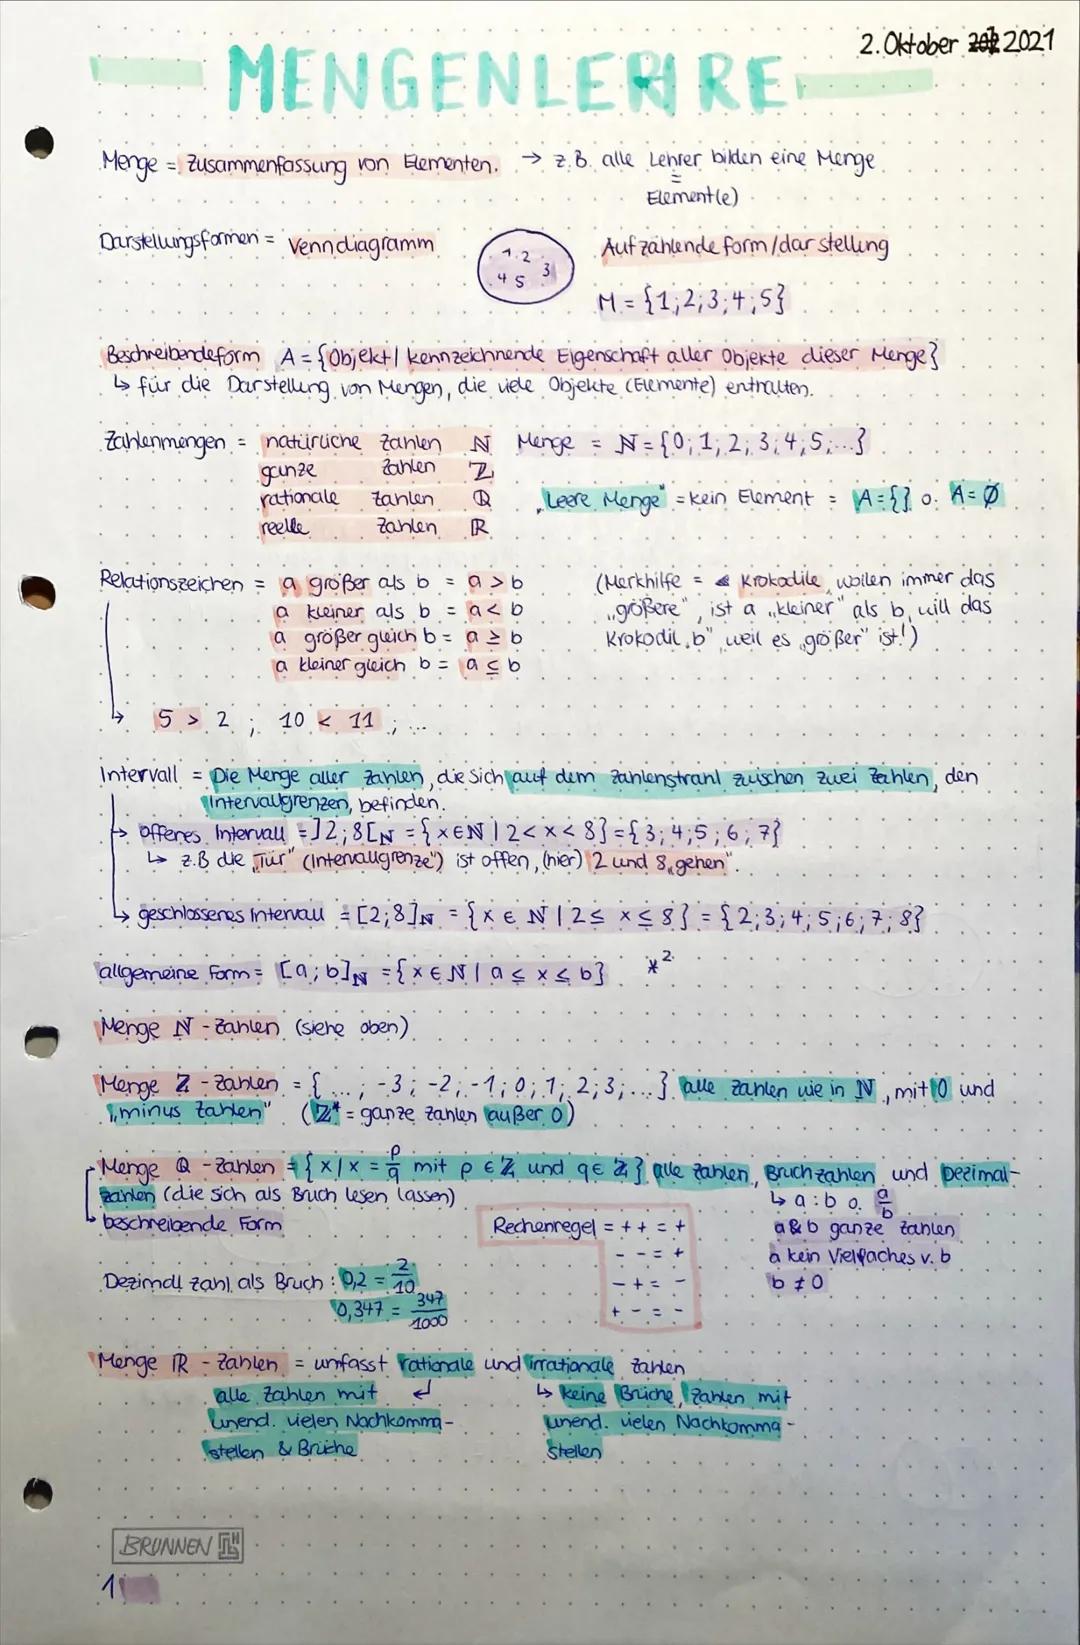 2. Oktober 2021
MENGENLEHRE
Menge = Zusammenfassung von Elementen. → z.B. alle Lehrer bilden eine Menge
=
Element(e)
Darstellungsformen = Venndiagramm
1 2
4 5 3
Aufzählende form/darstellung
M = {1;2;3;4;5}
Beschreibendeform A = {Objekt | kennzeichnende Eigenschaft aller Objekte dieser Menge}
↳ für die Darstellung von Mengen, die viele Objekte (Elemente) enthalten.
Zahlenmengen = natürliche Zahlen ℕ Menge = ℕ = {0; 1; 2; 3; 4; 5; ...}
ganze Zahlen ℤ
rationale Zahlen ℚ „Leere Menge" = kein Element = A={} o. A=∅
reelle Zahlen ℝ
Relationszeichen = a größer als b = a > b (Merkhilfe = Krokodile wollen immer das
a kleiner als b = a < b „größere", ist a „kleiner" als b, will das
a größer gleich b = a ≥ b Krokodil „b", weil es „größer" ist!)
a kleiner gleich b = a ≤ b
↳ 5 > 2 ; 10 < 11 ; ...
Intervall = Die Menge aller Zahlen, die sich auf dem Zahlenstrahl zwischen zwei Zahlen, den
Intervallgrenzen, befinden.
→ offenes Intervall = ]2;8[ℕ = {x∈ℕ | 2 < x < 8} = {3; 4; 5; 6; 7}
↳ z.B die „Tür" (Intervallgrenze") ist offen, (hier) 2 und 8 „gehen".
↳ geschlossenes Intervall = [2;8]ℕ = {x ∈ ℕ | 2 ≤ x ≤ 8} = {2;3;4;5;6;7;8}
allgemeine Form = [a;b]ℕ = {x∈ℕ | a ≤ x ≤ b} *²
Menge ℕ - Zahlen (siehe oben)
Menge ℤ - Zahlen = {...; -3; -2; -1; 0; 1; 2; 3; ...} alle Zahlen wie in ℕ, mit 0 und
„minus Zahlen" (ℤ* = ganze Zahlen außer 0)
Menge ℚ - Zahlen = {x | x = p/q mit p ∈ ℤ und q ∈ ℤ} alle Zahlen, Bruchzahlen und Dezimal-
zahlen (die sich als Bruch lesen lassen) ↳ a : b o. a/b
↳ beschreibende Form Rechenregel = + + = + a & b ganze Zahlen
- - = + a kein Vielfaches v. b
Dezimall zahl als Bruch : 0,2 = 2/10 - + = - b ≠ 0
0,347 = 347/1000 + - = -
Menge ℝ - Zahlen = umfasst rationale und irrationale Zahlen
alle Zahlen mit ↲ ↳ keine Brüche, Zahlen mit
unend. vielen Nachkomma- unend. vielen Nachkomma-
stellen & Brüche stellen
BRUNNEN
1